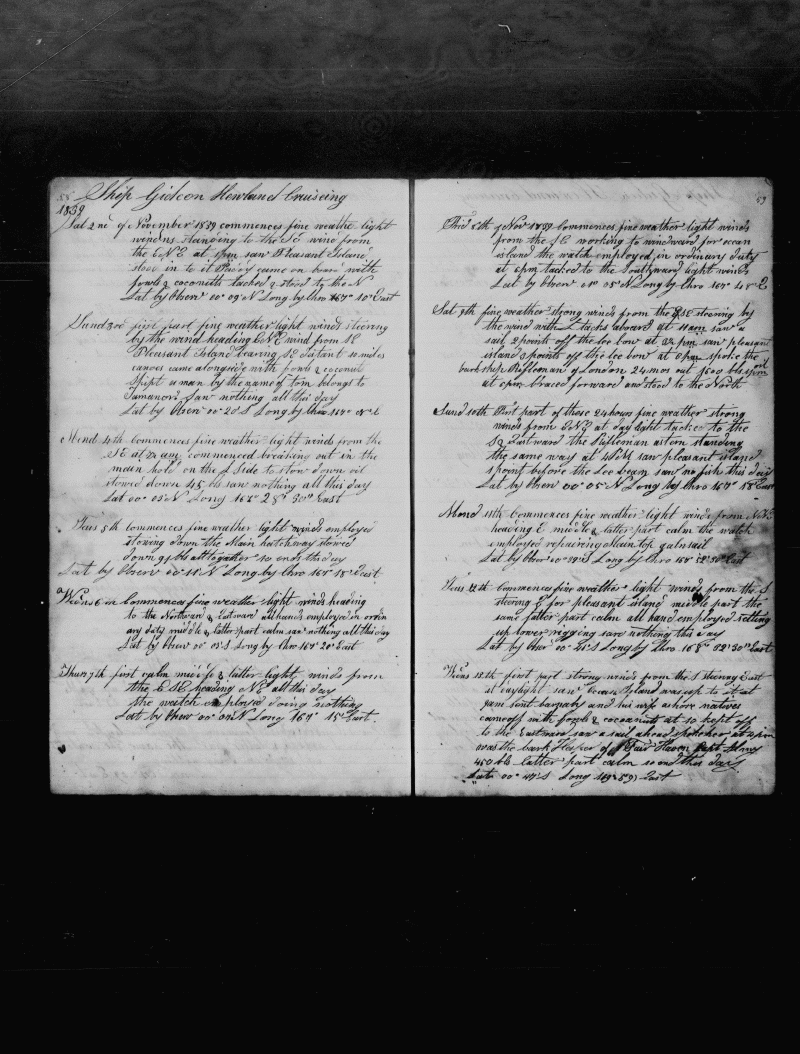 58 Ship Gideon Howland Cruiseing
1839
Sat 2nd of November 1839 commences fine weathe light
winds standing to the SE wind from
the ENE at 1pm saw Pleasant Island
stood in to it came on board with
fowls & coconuts tacked & stood to the N
Lat by Obser 00° 09' N Long by Chro 167° 10' East
Sund 3rd first part fine weather light winds steering
by the wind heading ENE wind from SE
Pleasant Island bearing SE distant 10 miles
canoes came alongside with fowls & coconuts
Shipt a man by the name of tom belongs to
Saw nothing all this day
Lat by Obser 00° 20' S Long by Chro 167° E
Mond 4th commences fine weather light winds from the
SE at am commenced breaking out in the
main hold on the Side to stow down oil
stowed down 45 bls saw nothing all this day
Lat 00° 03' N Long 168° 28' 30" East
Teus 5th commences fine weather light winds employed
stowing down the Main hatchway stowed
down 91 bbls alltogather so ends this day
Lat by Obser 00° 11' N Long by Chro 168° 18' East
Wedns 6th Commences fine weather light winds heading
to the Northward & Eastward all hands employed in ordin
ary duty middle & latter part calm saw nothing all this day
Lat by Obser 00° 03' S Long by Chro 168° 20' East
Thurs 7th first calm middle & latter light winds from
the ESE heading NE all this day
the watch employed doing nothing
Lat by Obser 00° N Long 167° 15' East
59
Frid 8th of Nov 1839 Commences fine weather light winds
from the SE working to windward for ocean
island the watch employed in ordinary duty
at 6pm tacked to the Southward light winds
Lat by Obser 01° 05' N Long by Chro 167° 48' E
Sat 9th fine weather strong winds from the ESE steering by
the wind with L tacks aboard at 11 am saw a
sail 2 points off the lee bow at pm saw pleasant
island 3 points off the lee bow at 6pm spoke the
bark ship Rifleman of London 24 mos out 1500 bbls oil
at 6pm braced forward and stood to the North
Sund 10th First part of these 24 hours fine weather strong
winds from ENE at daylight tacked to the
SE Eastward the Rifleman astern standing
the same way at PM saw pleasant island
1 point before the Lee beam saw no fish this day
Lat by Obser 00° 05' N Long by Chro 167° 18' East
Mond 11th Commences fine weather light winds from NNE
heading E middle & latter part calm the watch
employed repairing Main top galnsail
Lat by Obser 00° 19' S Long by Chro 168° 52' 30" East
Teus 12th Commences fine weather light winds from the S
steering E for pleasant island middle part the
same latter part calm all hand employed setting
up lower rigging saw nothing this day
Lat by Obser 00° 51' S Long by Chro 168° 02' 30" East
Wedns 13th first part strong winds from the S steering East
at daylight saw Ocean Island was up to it at
9am sent barnaby and his wife ashore natives
cameoff with fowls & cocoanuts at 10 kept off
to the Eastward saw a sail ahead spokeher at 2pm
was the bark Hesper of Fair Haven Capt
450 bbls latter part calm so ends this day
Lat 00° 47' S Long 169° 59' East